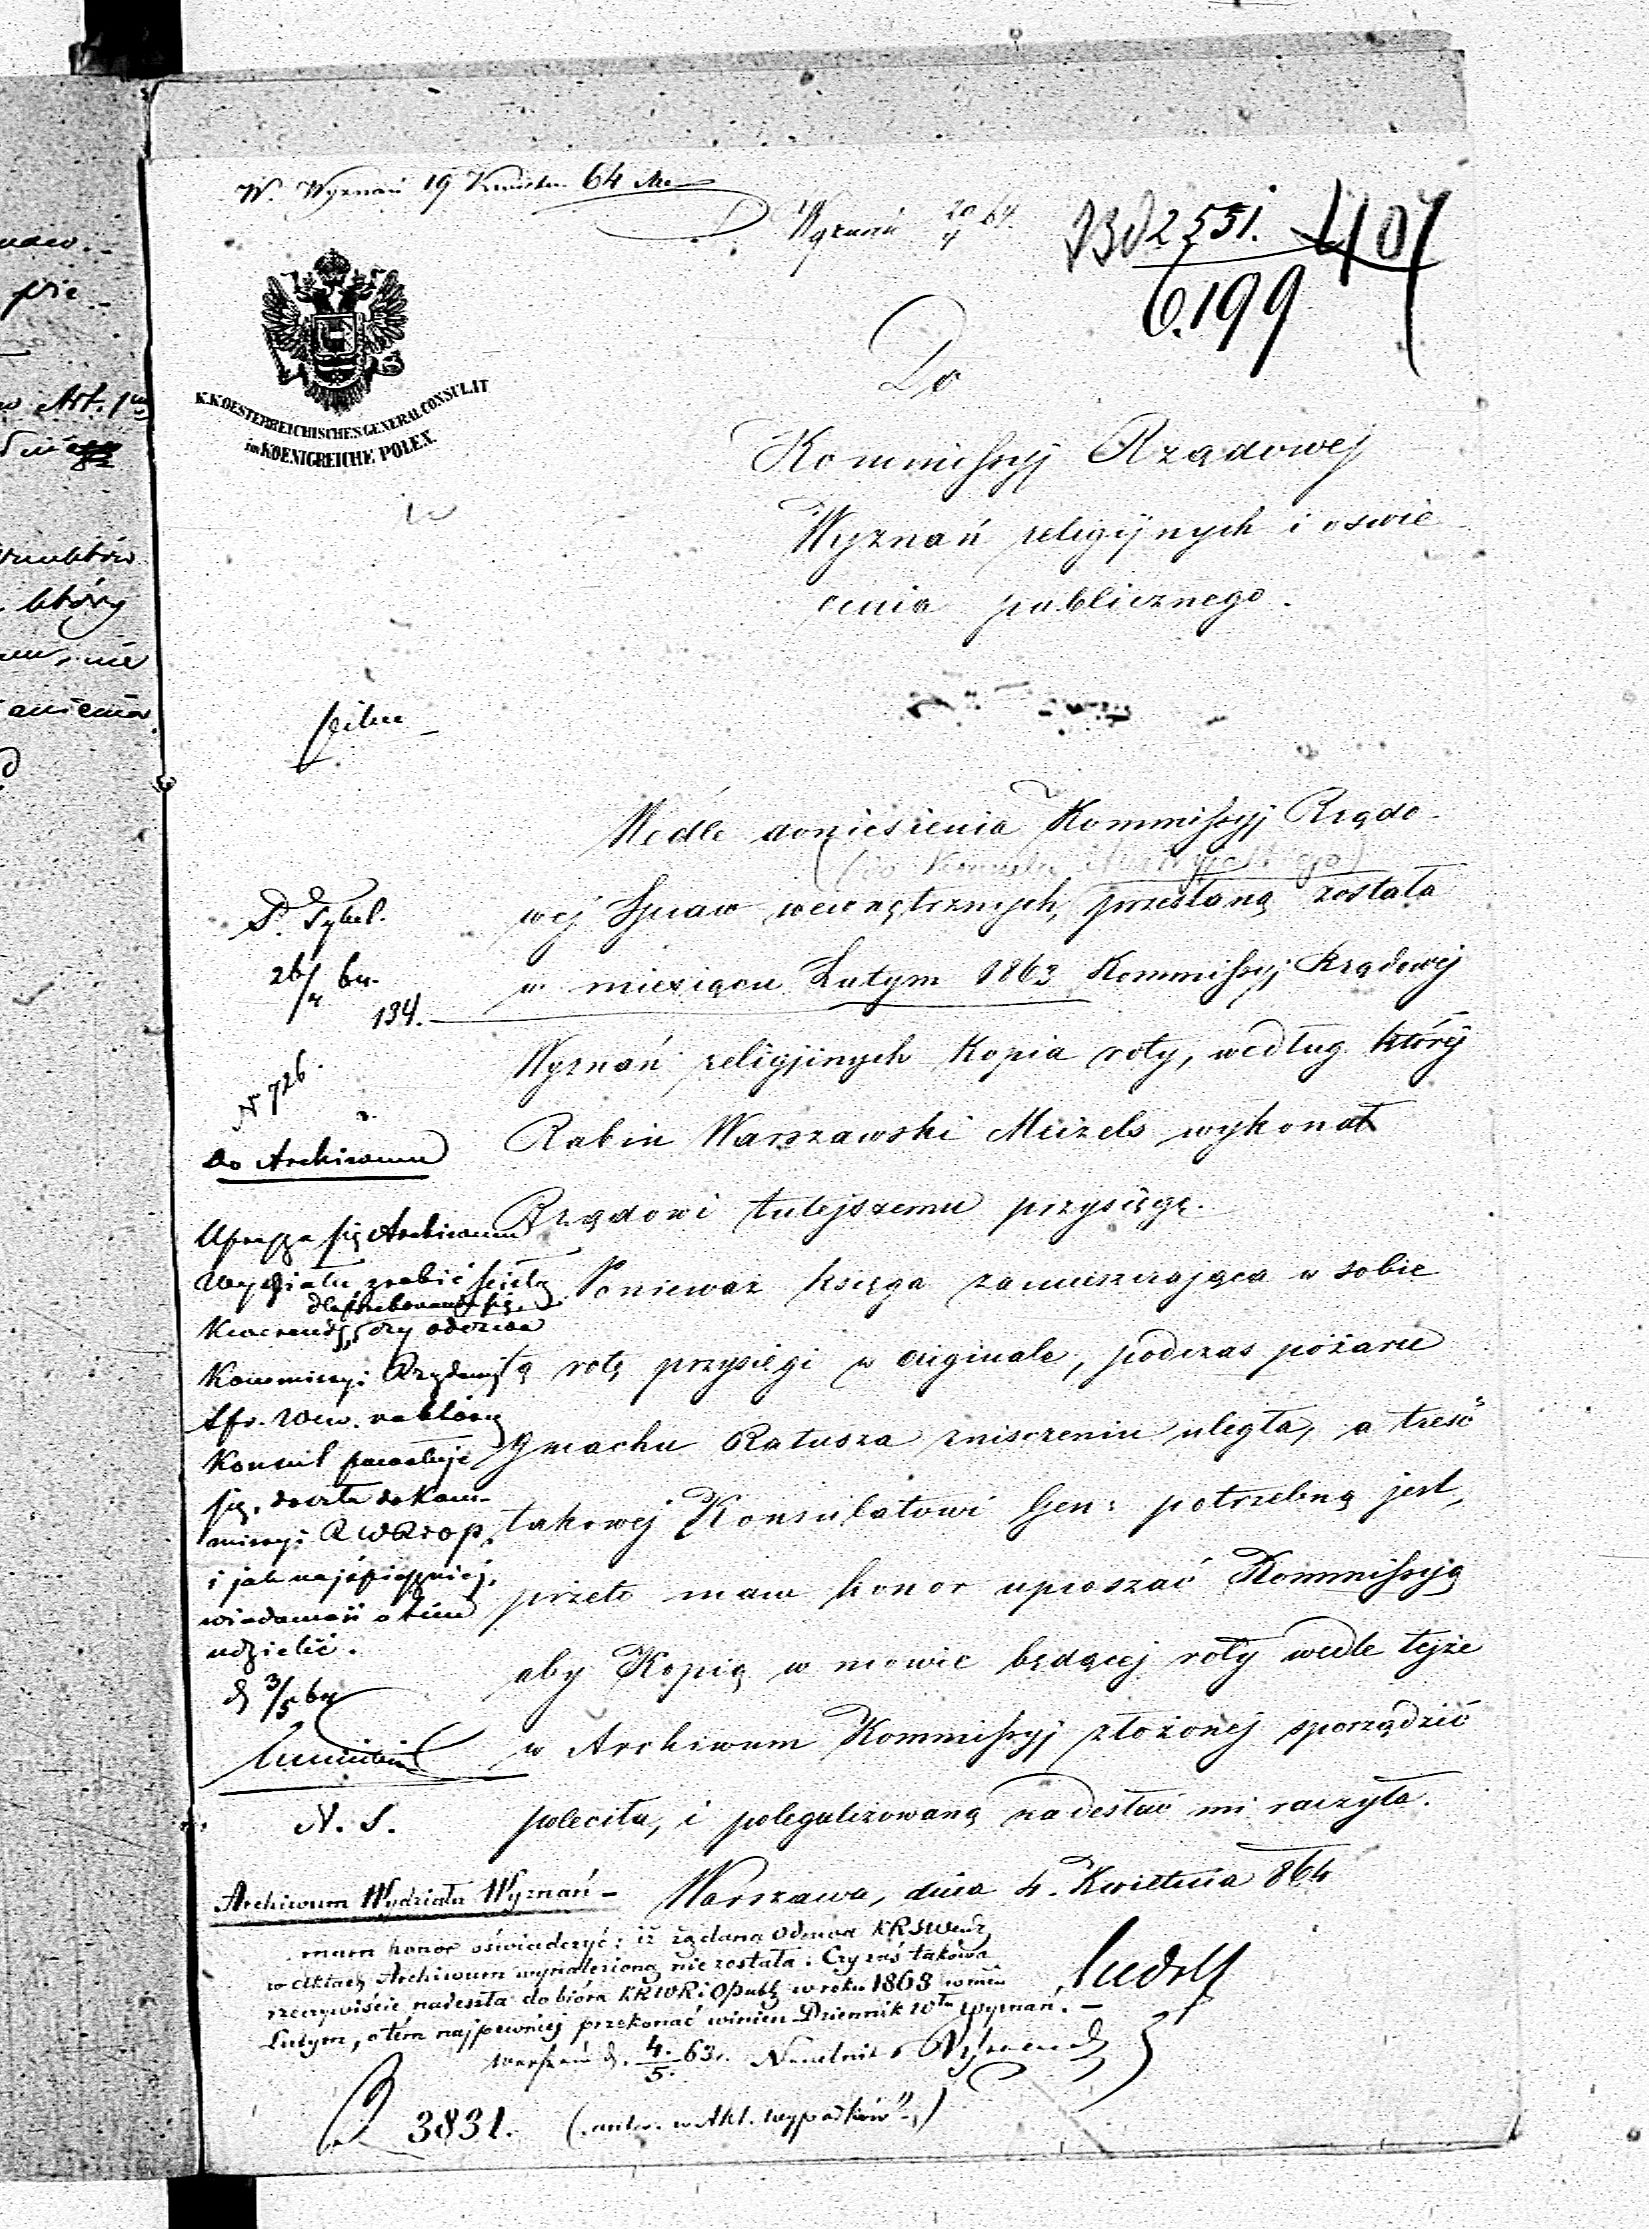 W. Wyznań 19 Kwietn. 64
Wyznań 20/4 64.
2531. 407
6.199
K.K.OESTERREICHISCHES GENERAL CONSULAT
im KOENIGREICHE POLEN.
Do
Kommissyj Rządowej
Wyznań religijnych i oswie
cenia publicznego.
pilne
Wedle doniesienia Kommissyj Rządo-
wej Spraw wewnętrznych, przesłaną została
w miesiącu Lutym 1863 Kommissyj Rządowej
Wyznań religijinych Kopia roty, według którÿ
Rabin Warszawski Meizels wykonał
Rządowi tutejszemu przysięgę.
Ponieważ księga zamieszczająca w sobie
tą rotę przysięgi w originale, podczas pożaru
gmachu Ratusza zniszczeniu uległa, a treść
takowej Konsulatowi Gen: potrzebną jest,
przeto mam honor upraszać Kommissyją
aby Kopią w mowie będącej roty wedle tejże
w Archiwum Kommissyj złożonej sporządzić
poleciła, i polegalizowaną nadesłać mi raczyła.
Warszawa, dnia 4. Kwietnia 864
Ludolf
P. Sybel.
26/4 64.
134.
N 726.
Do Archiwum
Uprasza się Archiwum
Wydziału zrobić ścisłą
kwerendę, czy odezwa
Kommissyi Rządowej
Spr. Wew. na którą
Konsul powołuje
się, doszła do Kom-
missyi R W R i O P.
i jak najśpieszniej
wiadomość o tém
udzielić.
d 3/5 64
N. S.
Archiwum Wydziału Wyznań –
mam honor oświadczyć: iż żądana Odezwa KRSWew
w aktach Archiwum wynalezioną nie została. Czy zaś takowa
rzeczywiście nadeszła do bióra KRWR i OPubl w roku 1863 w mcu
Lutym, o tém najpewniej przekonać winien Dziennik Włu Wyznań. –
Warszawa d. 4/5. 63 r.
3831. (w Akt. wypadków)